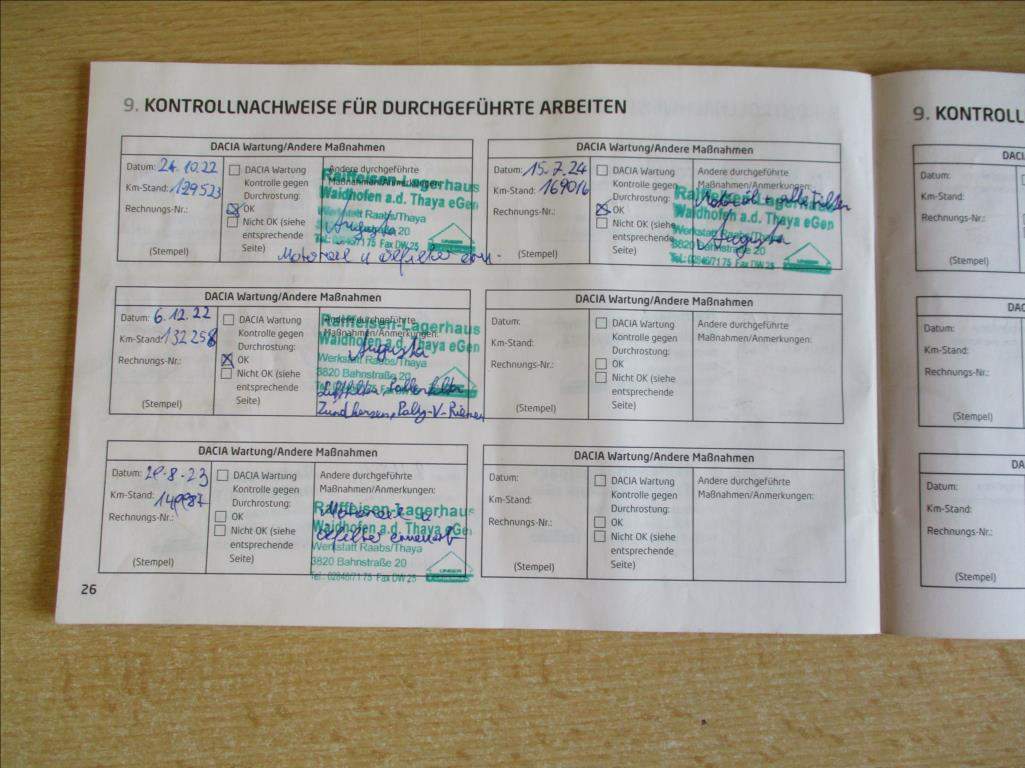 9. KONTROLLNACHWEISE FÜR DURCHGEFÜHRTE ARBEITEN
DACIA Wartung/Andere Maßnahmen
Datum: 24.10.22
Km-Stand: 129523
Rechnungs-Nr.:
(Stempel)
DACIA Wartung
Kontrolle gegen
Durchrostung:
OK
Nicht OK (siehe
entsprechende
Seite)
Andere durchgeführte
Maßnahmen/Anmerkungen:
Raiffeisen-Lagerhaus
Waidhofen a.d. Thaya eGen
Werkstatt Raabs/Thaya
Tel.: 02846/71 75 Fax DW 25
DACIA Wartung/Andere Maßnahmen
Datum: 6.12.22
Km-Stand: 132258
Rechnungs-Nr.:
(Stempel)
DACIA Wartung
Kontrolle gegen
Durchrostung:
OK
Nicht OK (siehe
entsprechende
Seite)
Andere durchgeführte
Maßnahmen/Anmerkungen:
Raiffeisen-Lagerhaus
Waidhofen a.d. Thaya eGen
Werkstatt Raabs/Thaya
3820 Bahnstraße 20
Zündkerzen, Poly-V-Riemen
DACIA Wartung/Andere Maßnahmen
Datum: 29.8.23
Km-Stand: 149987
Rechnungs-Nr.:
(Stempel)
DACIA Wartung
Kontrolle gegen
Durchrostung:
OK
Nicht OK (siehe
entsprechende
Seite)
Andere durchgeführte
Maßnahmen/Anmerkungen:
Raiffeisen-Lagerhaus
Waidhofen a.d. Thaya eGen
Werkstatt Raabs/Thaya
3820 Bahnstraße 20
Tel.: 02846/71 75 Fax DW 25
DACIA Wartung/Andere Maßnahmen
Datum: 15.7.24
Km-Stand: 169016
Rechnungs-Nr.:
(Stempel)
DACIA Wartung
Kontrolle gegen
Durchrostung:
OK
Nicht OK (siehe
entsprechende
Seite)
Andere durchgeführte
Maßnahmen/Anmerkungen:
Raiffeisen-Lagerhaus
Waidhofen a.d. Thaya eGen
Werkstatt Raabs/Thaya
3820 Bahnstraße 20
Tel.: 02846/71 75 Fax DW 25
DACIA Wartung/Andere Maßnahmen
Datum:
Km-Stand:
Rechnungs-Nr.:
(Stempel)
DACIA Wartung
Kontrolle gegen
Durchrostung:
OK
Nicht OK (siehe
entsprechende
Seite)
Andere durchgeführte
Maßnahmen/Anmerkungen:
DACIA Wartung/Andere Maßnahmen
Datum:
Km-Stand:
Rechnungs-Nr.:
(Stempel)
DACIA Wartung
Kontrolle gegen
Durchrostung:
OK
Nicht OK (siehe
entsprechende
Seite)
Andere durchgeführte
Maßnahmen/Anmerkungen:
26
9. KONTROLL
DACI
Datum:
Km-Stand:
Rechnungs-Nr.:
(Stempel)
DAC
Datum:
Km-Stand:
Rechnungs-Nr.:
(Stempel)
DA
Datum:
Km-Stand:
Rechnungs-Nr.:
(Stempel)